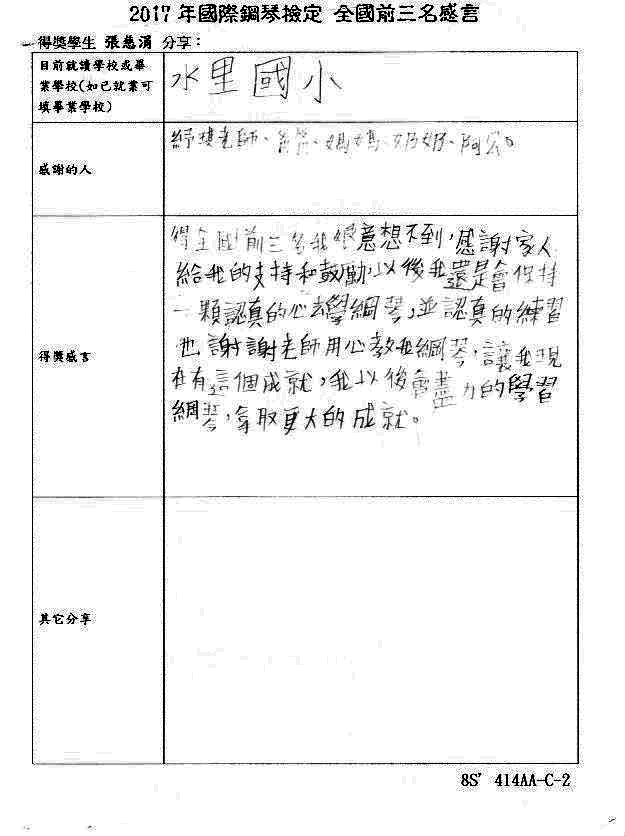 2017 年國際鋼琴檢定 全國前三名感言
得獎學生 張慈涓 分享：
目前就讀學校或畢
業學校(如已就業可
填畢業學校)
水里國小
感謝的人
老師、爸爸、媽媽、奶奶、阿公
得獎感言
得全國前三名我很意想不到，感謝家人
給我的支持和鼓勵，以後我還是會保持
一顆認真的心去學綱琴，並認真的練習
也謝謝老師用心教我綱琴，讓我現
在有這個成就，我以後會盡力的學習
綱琴，拿取更大的成就。
其它分享
8S' 414AA-C-2